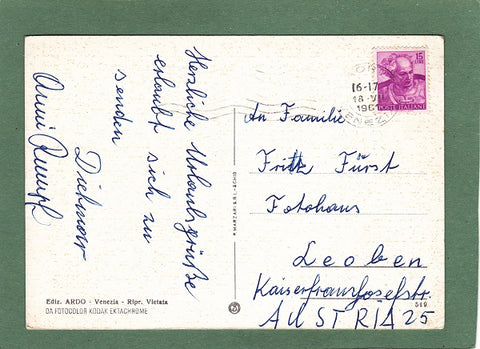 Herzliche Urlaubsgrüße
erlaubt sich zu
senden
Dietmar
Anni Rumpf
An Familie
Fritz Fürst
Fotohaus
Leoben
Kaiserfranzjosefstr.
AUSTRIA 25
15
POSTE ITALIANE
16-17
18·VI
196
Ediz. ARDO - Venezia - Ripr. Vietata
DA FOTOCOLOR KODAK EKTACHROME
519